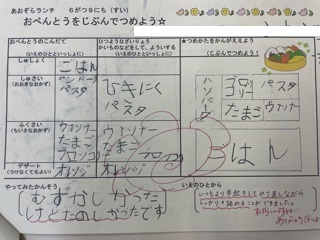 あおぞらランチ　６がつ９にち（すい）
おべんとうをじぶんでつめよう☆
おべんとうのこんだて
（いえのひとといっしょに）
ひつようなざいりょう
かいものなどをして、よういする
（いえのひとといっしょに）
★つめかたをかんがえよう
しゅしょく
ごはん
しゅさい
（おおきなおかず）
ハンバーグ
パスタ
ひきにく
パスタ
ハンバーグ
パスタ
たまご
ウィンナー
ふくさい
（ちいさなおかず）
ウィンナー
たまご
ブロッコリー
ウィンナー
たまご
ブロッコリー
ごはん
デザート
（つけなくてもよい）
オレンジ
オレンジ
やってみたかんそう
むずかしかった
けどたのしかったです
いえのひとから
いつもより早起きをして
しっかり詰めることができました。